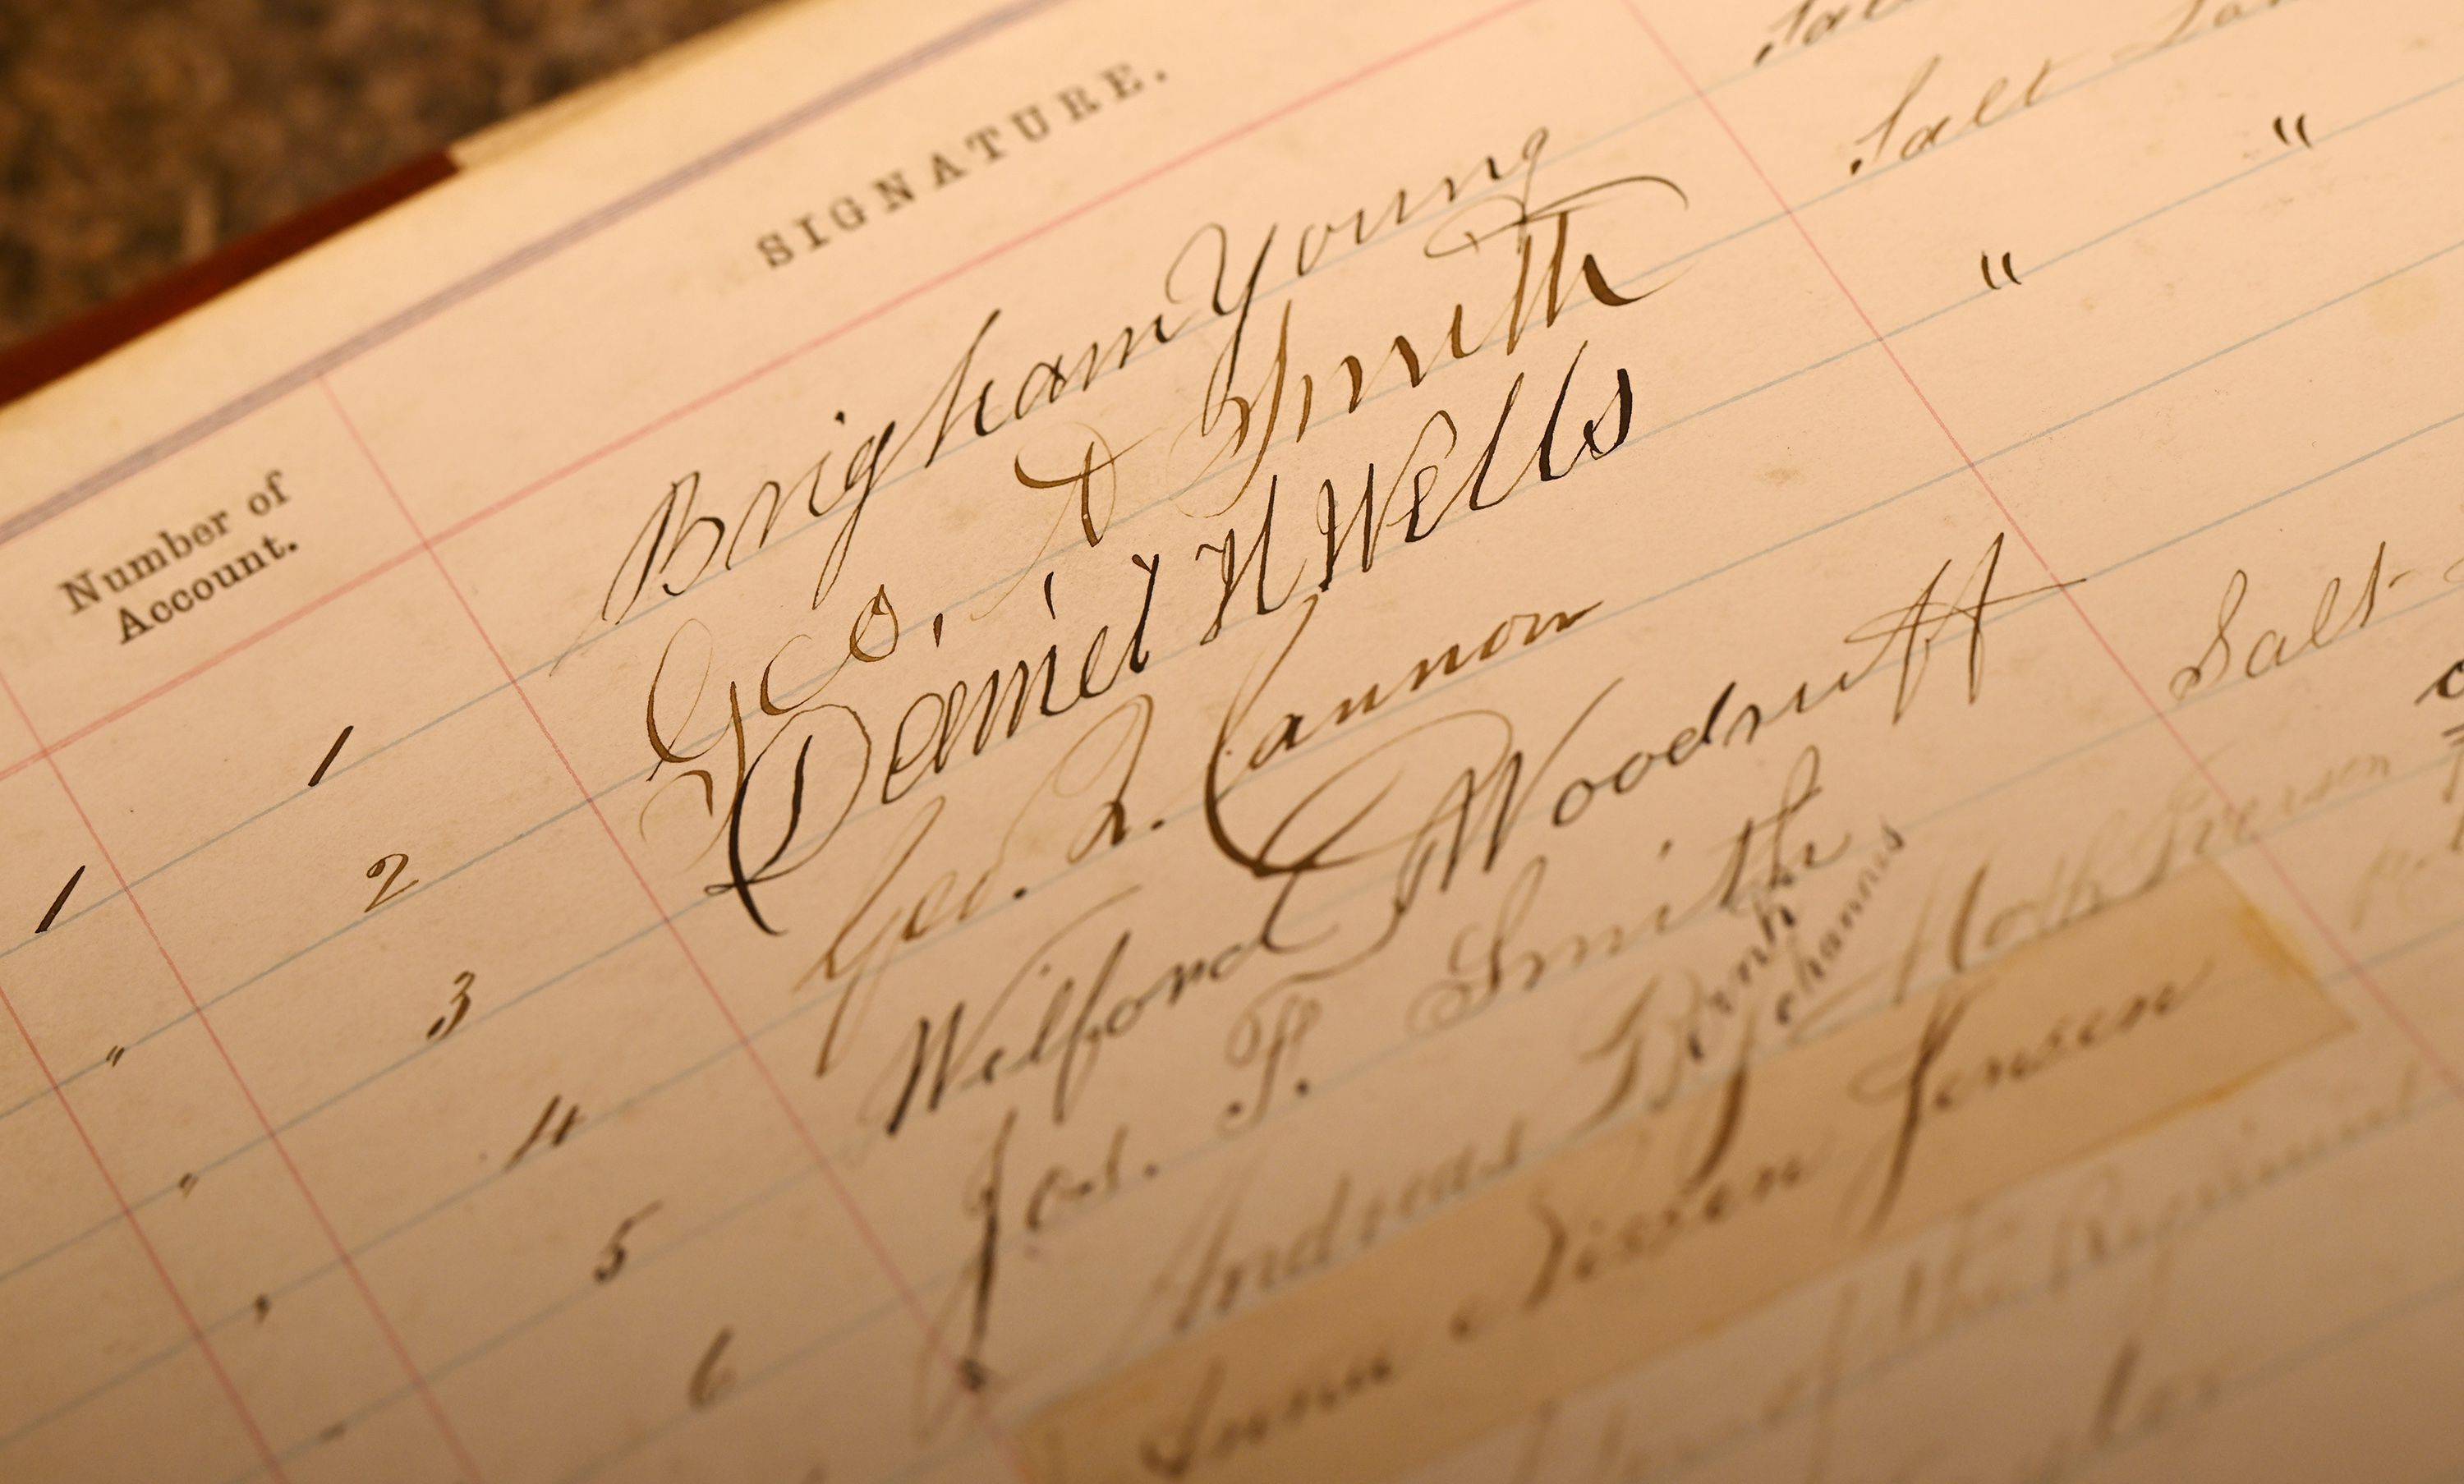 SIGNATURE.
Number of
Account.
1 1 Brigham Young Salt
2 Geo. A Smith Salt
" 3 Daniel H Wells " "
" 4 Geo. Q. Cannon "
" 5 Wilford Woodruff Salt
" 6 Jos. F. Smith
Andreas
Anna Nissen Jensen
of the